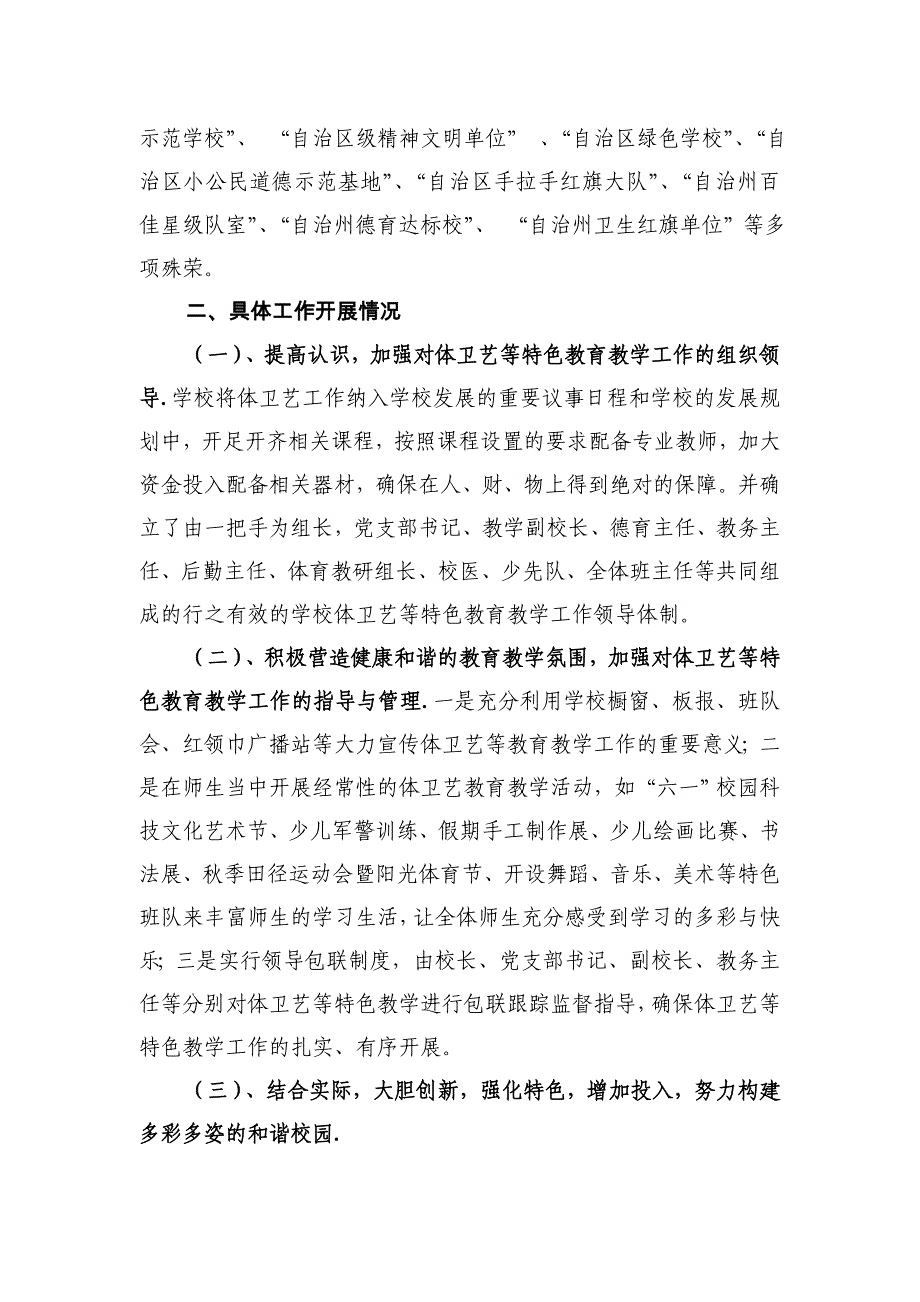 示范学校”、 “自治区级精神文明单位” 、“自治区绿色学校”、“自
治区小公民道德示范基地”、“自治区手拉手红旗大队”、“自治州百
佳星级队室”、“自治州德育达标校”、 “自治州卫生红旗单位”等多
项殊荣。
二、具体工作开展情况
（一）、提高认识，加强对体卫艺等特色教育教学工作的组织领
导.学校将体卫艺工作纳入学校发展的重要议事日程和学校的发展规
划中，开足开齐相关课程，按照课程设置的要求配备专业教师，加大
资金投入配备相关器材，确保在人、财、物上得到绝对的保障。并确
立了由一把手为组长，党支部书记、教学副校长、德育主任、教务主
任、后勤主任、体育教研组长、校医、少先队、全体班主任等共同组
成的行之有效的学校体卫艺等特色教育教学工作领导体制。
（二）、积极营造健康和谐的教育教学氛围，加强对体卫艺等特
色教育教学工作的指导与管理.一是充分利用学校橱窗、板报、班队
会、红领巾广播站等大力宣传体卫艺等教育教学工作的重要意义；二
是在师生当中开展经常性的体卫艺教育教学活动，如“六一”校园科
技文化艺术节、少儿军警训练、假期手工制作展、少儿绘画比赛、书
法展、秋季田径运动会暨阳光体育节、开设舞蹈、音乐、美术等特色
班队来丰富师生的学习生活，让全体师生充分感受到学习的多彩与快
乐；三是实行领导包联制度，由校长、党支部书记、副校长、教务主
任等分别对体卫艺等特色教学进行包联跟踪监督指导，确保体卫艺等
特色教学工作的扎实、有序开展。
（三）、结合实际，大胆创新，强化特色，增加投入，努力构建
多彩多姿的和谐校园.